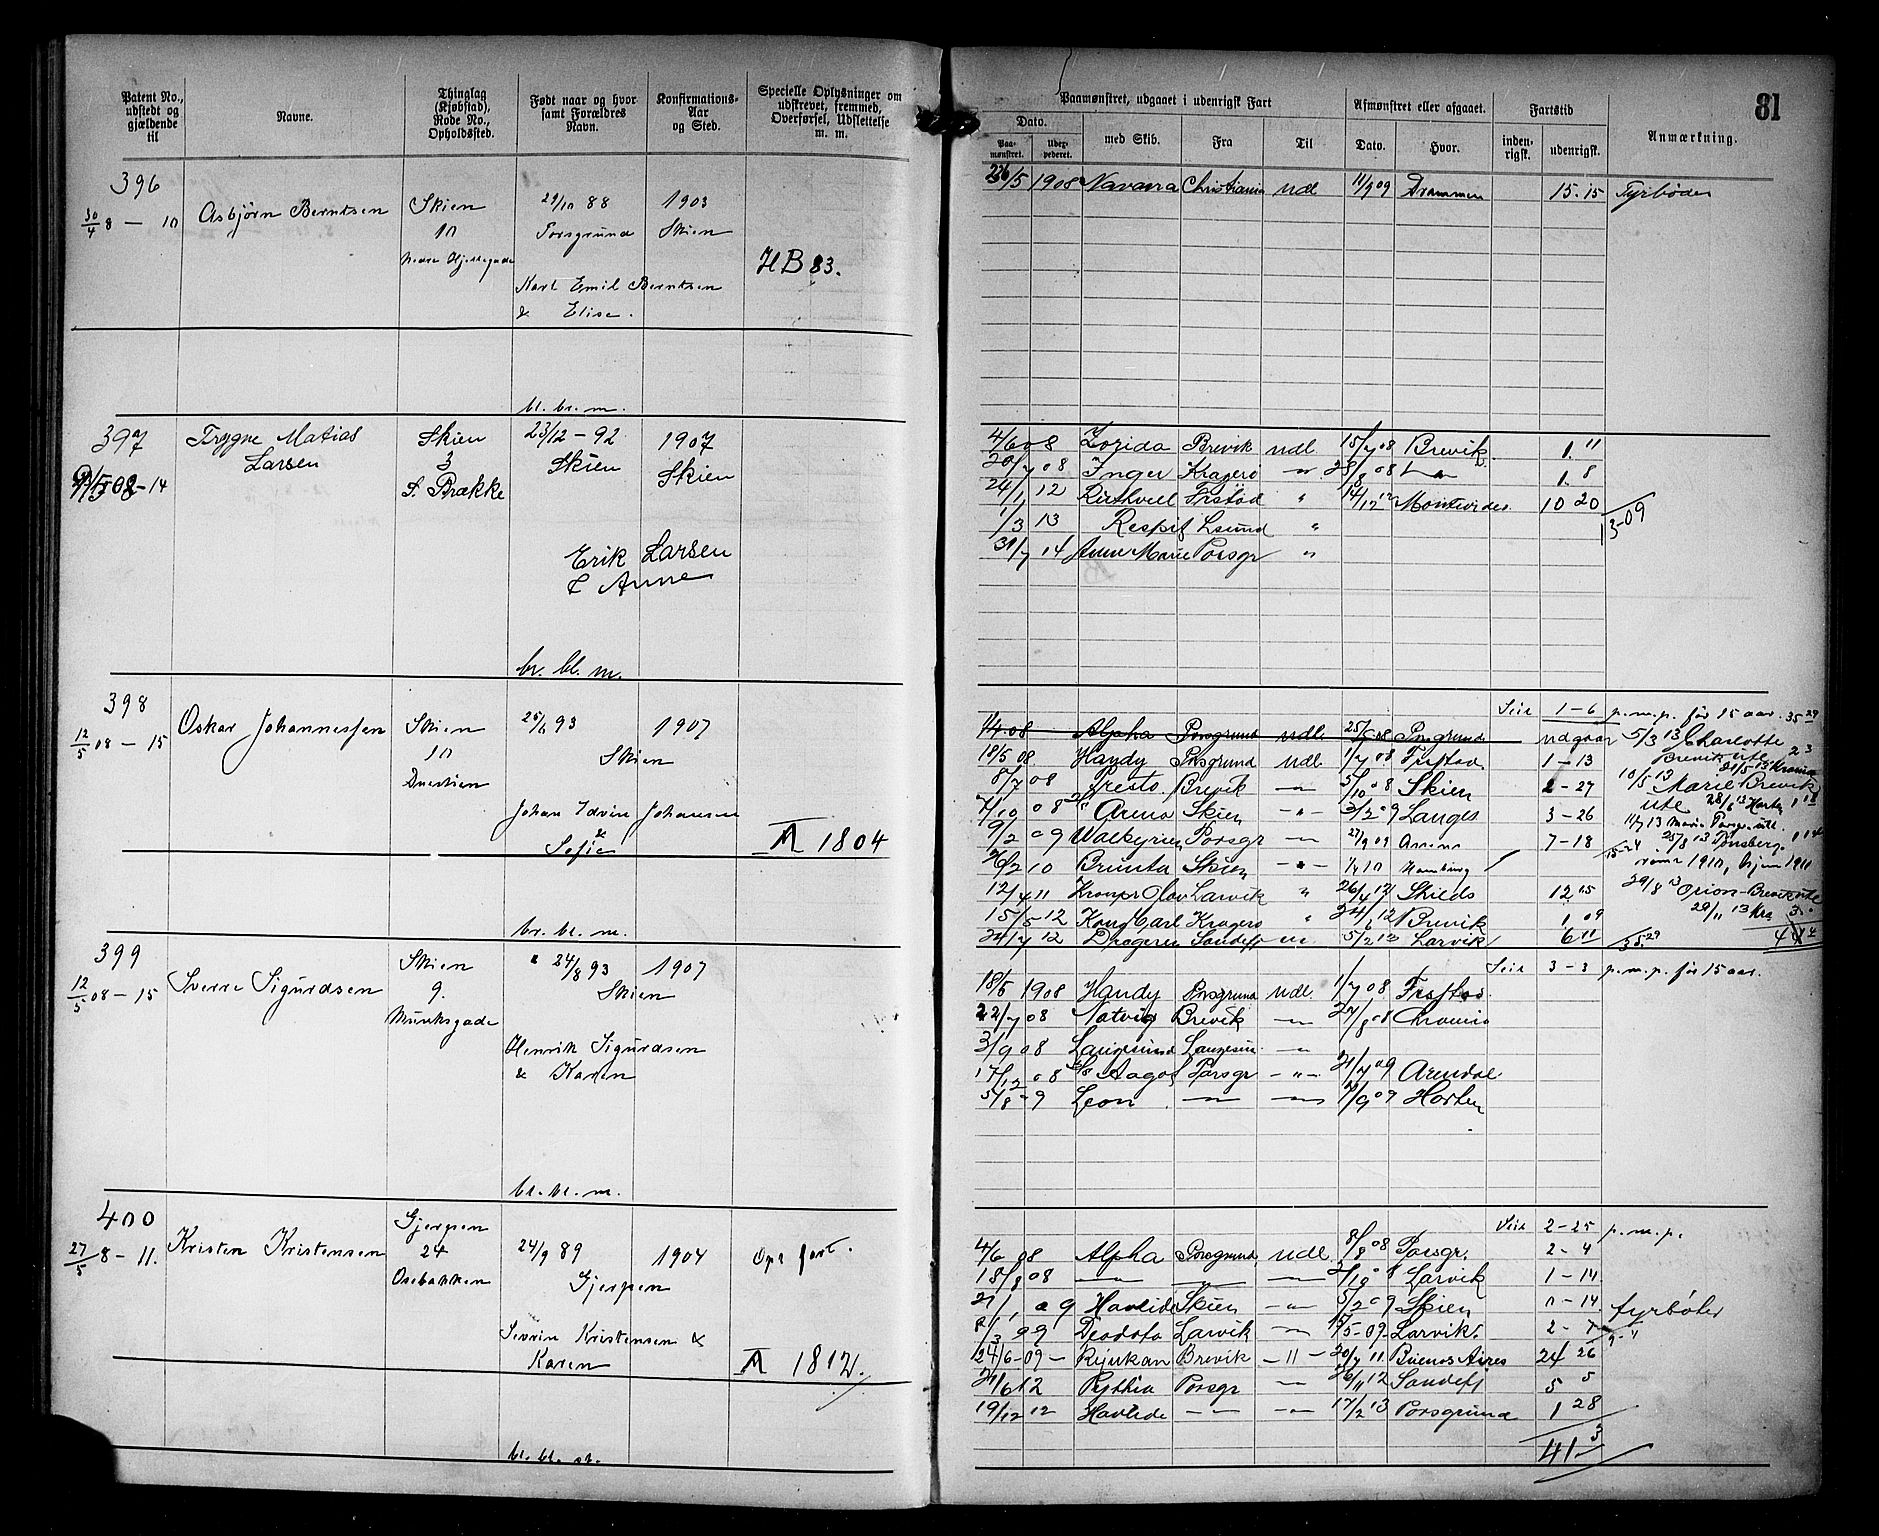 81
Patent No., udstedt og gjældende til
Navne.
Thinglag (Kjøbstad), Rode No., Opholdssted.
Født naar og hvor samt Forældres Navn.
Konfirmations-Aar og Sted.
Specielle Oplysninger om udskrevet, fremmed, Overførsel, Udslettelse m. m.
Paamønstret, udgaaet i udenrigsk Fart
Afmønstret eller afgaaet.
Fartstid
Anmærkning.
Dato.
med Skib.
Fra
Til
Dato.
Hvor.
inden-rigsk.
udenrigsk.
Paa-mønstret.
396
30/4 8 — 10
Asbjørn Berntsen
Skien
10
Nedre Hjellegade
29/10 88
Porsgrund
Karl Emil Berntsen
& Elise.
1903
Skien
HB 83.
5 1908 Navarra Christiania Udl 11/9 09 Drammen 15. 15 Fyrbøder
bl. br. m.
397
08 - 14
Trygve Matias
Larsen
Skien
3
S. Brække
23/12 - 92
Skien
1907
Skien
Erik Larsen
& Anne
4/6 08 Zorida Brevik udl 15/7 08 Brevik 1. 11
20/7 08 Inger Kragerø — 28/8 08 — 1. 8
24/1 12 Frstad " 14/12 12 Montevideo 10 20
13-09
1/3 13 Respit Lsund "
31/7 14 Anne Marie Porsgr "
br. bl. m.
398
12/5 08 — 15
Oskar Johannessen
Skien
10
Duestien
25/6 93
Skien
1907
Johan Edvin Johansen
&
Sofie
M 1804
Seil 1 - 6 p.m.p. før 15 aar. 35 29
08 Alpha Porsgrund udl. 25/ 08 Porsgrund udgaar 5/3 13 Charlotte
18/5 08 Handy Porsgrund Udl. 1/7 08 Frstad 1 - 13 Brevik ute
8/7 08 Presto Brevik — 5/10 08 Skien 2 - 27 10/5 13 Marie Brevik
7/10 08 Arena Skien — 3/2 09 Langes 3 - 26 ute 28/6 13 Horten 1 18
9/2 09 Valkyrien Porsgr — 27/9 09 7 - 18 11/7 13 Marie Porsgr. utl.
25/8 13 Tønsberg
26/2 10 Brunla Skien — 1/4 10 Hamburg rømt 1910, hjem 1911
12/4 11 Kronpr Olav Larvik " 26/4 12 Shields 12 05 29/8 13 Orion - Brevik ute
15/5 12 Kong Carl Kragerø " 24/6 12 Brevik 1 09 29/11 13 Kra 3
24/7 12 Sandefj — 5/2 13 Larvik 6 11 35 29
br. bl. m.
399
12/5 08 — 15
Sverre Sigurdsen
Skien
9.
Munksgade
24/8 93
Skien
1907
Henrik Sigurdsen
& Karen
Seil 3 - 3 p.m.p. før 15 aar.
18/5 1908 Handy Porsgrund Udl. 1/7 08 Frstad.
22/7 08 Natvig Brevik — 27/8 08
3/9 08 Langesund Langesun. —
17/12 08 Aagot Porsgr — 21/7 09 Arendal
5/8 - 9 Leon — — 7/9 09 Horten
bl. br. m.
400
27/5 8 — 11.
Kristen Kristensen
Gjerpen
24
Osebakken
24/9 89
Gjerpen
1904
Severin Kristensen &
Karen
M 1812.
Seil 2 - 25 p.m.p.
4/6 08 Alpha Porsgrund Udl. 8/8 08 Porsgr. 2 - 4
18/8 08 — — — 2/10 08 Larvik 1 - 14
21/1 09 Havlide Skien — 5/2 09 Skien 0 - 14. fyrbøter
8/3 09 Deodata Larvik — /5 - 09 Larvik. 2 - 7
24/6 - 09 - Rijukan Brevik — 20/7 11. Buenos Aires 24 26
21/6 12 Pythia Porsgr — 26/11 12 Sandefj 5 5
19/12 12 Havlide — — 17/2 13 Porsgrund 1 28
41 - 3
bl. bl. br.